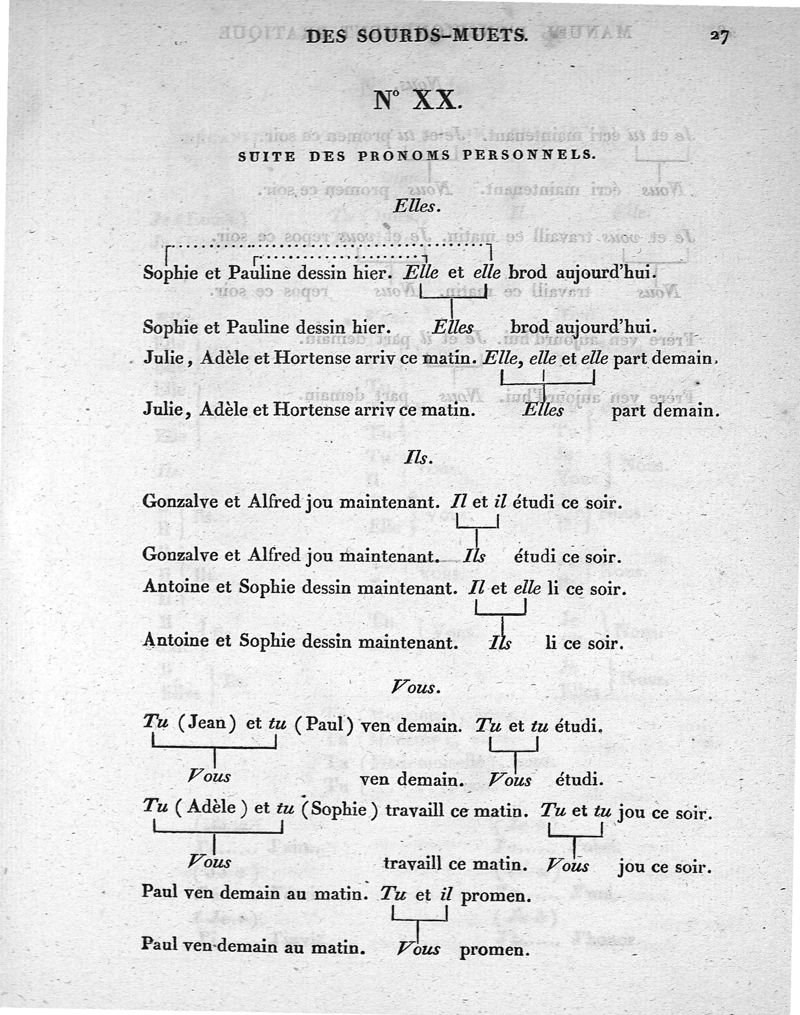 DES SOURDS-MUETS. 27
N° XX.
SUITE DES PRONOMS PERSONNELS.
Elles.
Sophie et Pauline dessin hier. Elle et elle brod aujourd'hui.
Sophie et Pauline dessin hier. Elles brod aujourd'hui.
Julie, Adèle et Hortense arriv ce matin. Elle, elle et elle part demain.
Julie, Adèle et Hortense arriv ce matin. Elles part demain.
Ils.
Gonzalve et Alfred jou maintenant. Il et il étudi ce soir.
Gonzalve et Alfred jou maintenant. Ils étudi ce soir.
Antoine et Sophie dessin maintenant. Il et elle li ce soir.
Antoine et Sophie dessin maintenant. Ils li ce soir.
Vous.
Tu (Jean) et tu (Paul) ven demain. Tu et tu étudi.
Vous ven demain. Vous étudi.
Tu (Adèle) et tu (Sophie) travaill ce matin. Tu et tu jou ce soir.
Vous travaill ce matin. Vous jou ce soir.
Paul ven demain au matin. Tu et il promen.
Paul ven demain au matin. Vous promen.